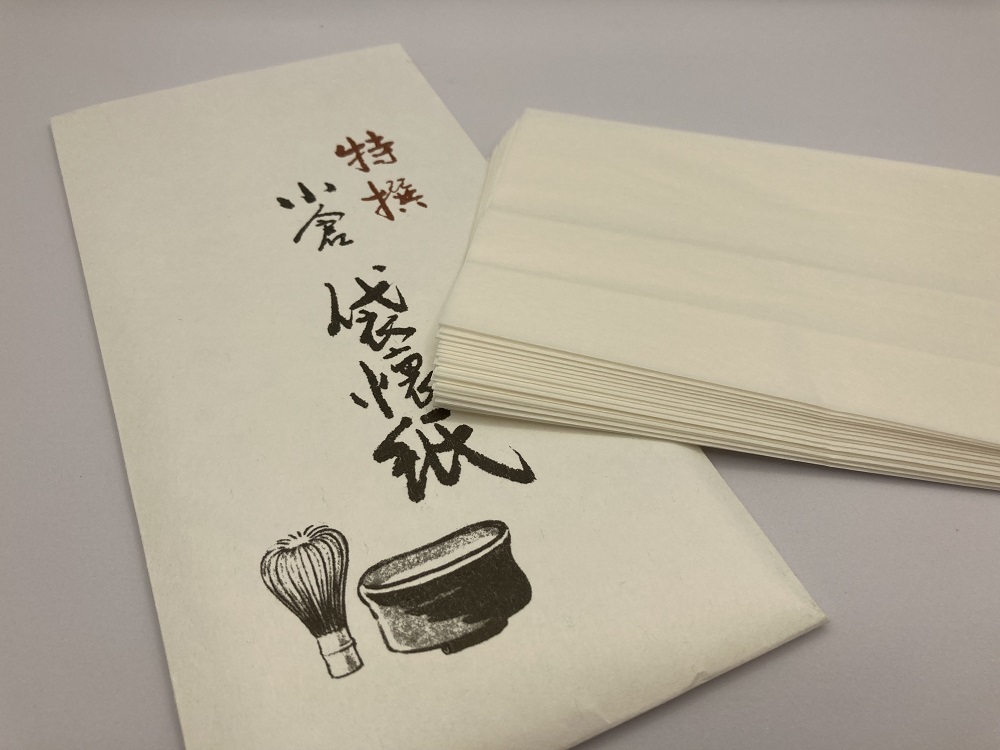 特撰
小倉
袋懐紙